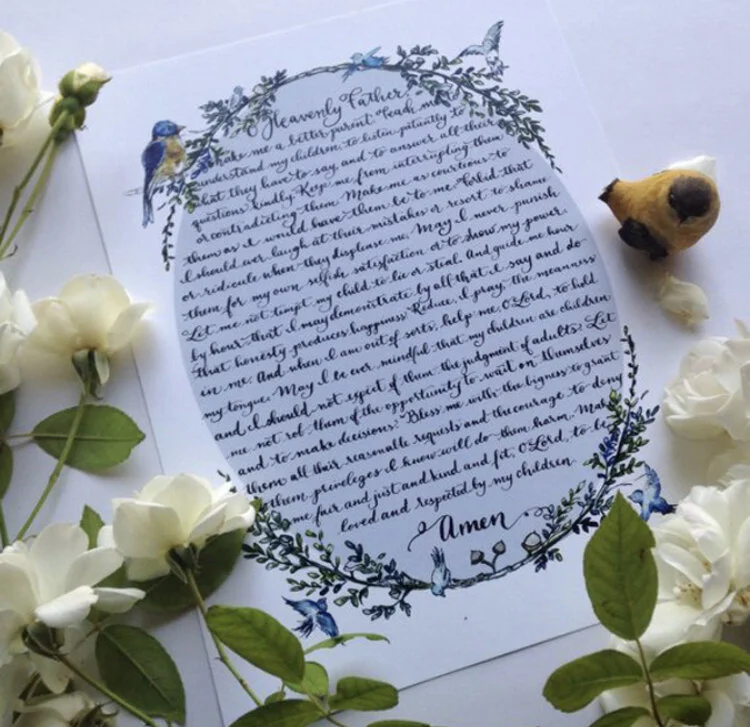 Heavenly Father,
make me a better parent. Teach me to
understand my children, to listen patiently to
what they have to say, and to answer all their
questions kindly. Keep me from interrupting them
or contradicting them. Make me as courteous to
them as I would have them be to me. Forbid that
I should ever laugh at their mistakes or resort to shame
or ridicule when they displease me. May I never punish
them for my own selfish satisfaction or to show my power.
Let me not tempt my child to lie or steal. And guide me hour
by hour that I may demonstrate by all that I say and do
that honesty produces happiness. Reduce, I pray, the meanness
in me. And when I am out of sorts, help me, O Lord, to hold
my tongue. May I be ever mindful that my children are children
and I should not expect of them the judgment of adults. Let
me not rob them of the opportunity to wait on themselves
and to make decisions. Bless me with the bigness to grant
them all their reasonable requests and the courage to deny
them privileges I know will do them harm. Make
me fair and just and kind and fit, O Lord, to be
loved and respected by my children.
Amen